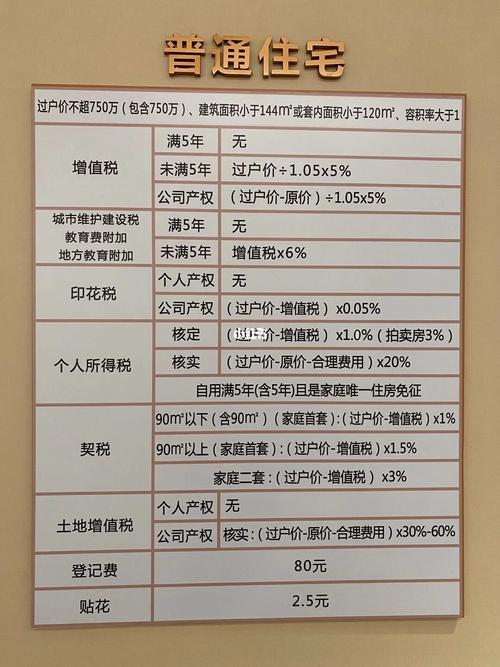 普通住宅
过户价不超750万(包含750万)、建筑面积小于144㎡或套内面积小于120㎡、容积率大于1
增值税
满5年
无
未满5年
过户价÷1.05x5%
公司产权
(过户价-原价)÷1.05x5%
城市维护建设税
教育费附加
地方教育附加
满5年
无
未满5年
增值税x6%
印花税
个人产权
无
公司产权
(过户价-增值税) x0.05%
个人所得税
核定
(过户价-增值税) x1.0% (拍卖房3%)
核实
(过户价-原价-合理费用) x20%
自用满5年(含5年)且是家庭唯一住房免征
契税
90㎡以下(含90㎡) (家庭首套) : (过户价-增值税) x1%
90㎡以上(家庭首套) : (过户价-增值税) x1.5%
家庭二套: (过户价-增值税) x3%
土地增值税
个人产权
无
公司产权
核实: (过户价-原价-合理费用) x30%-60%
登记费
80元
贴花
2.5元